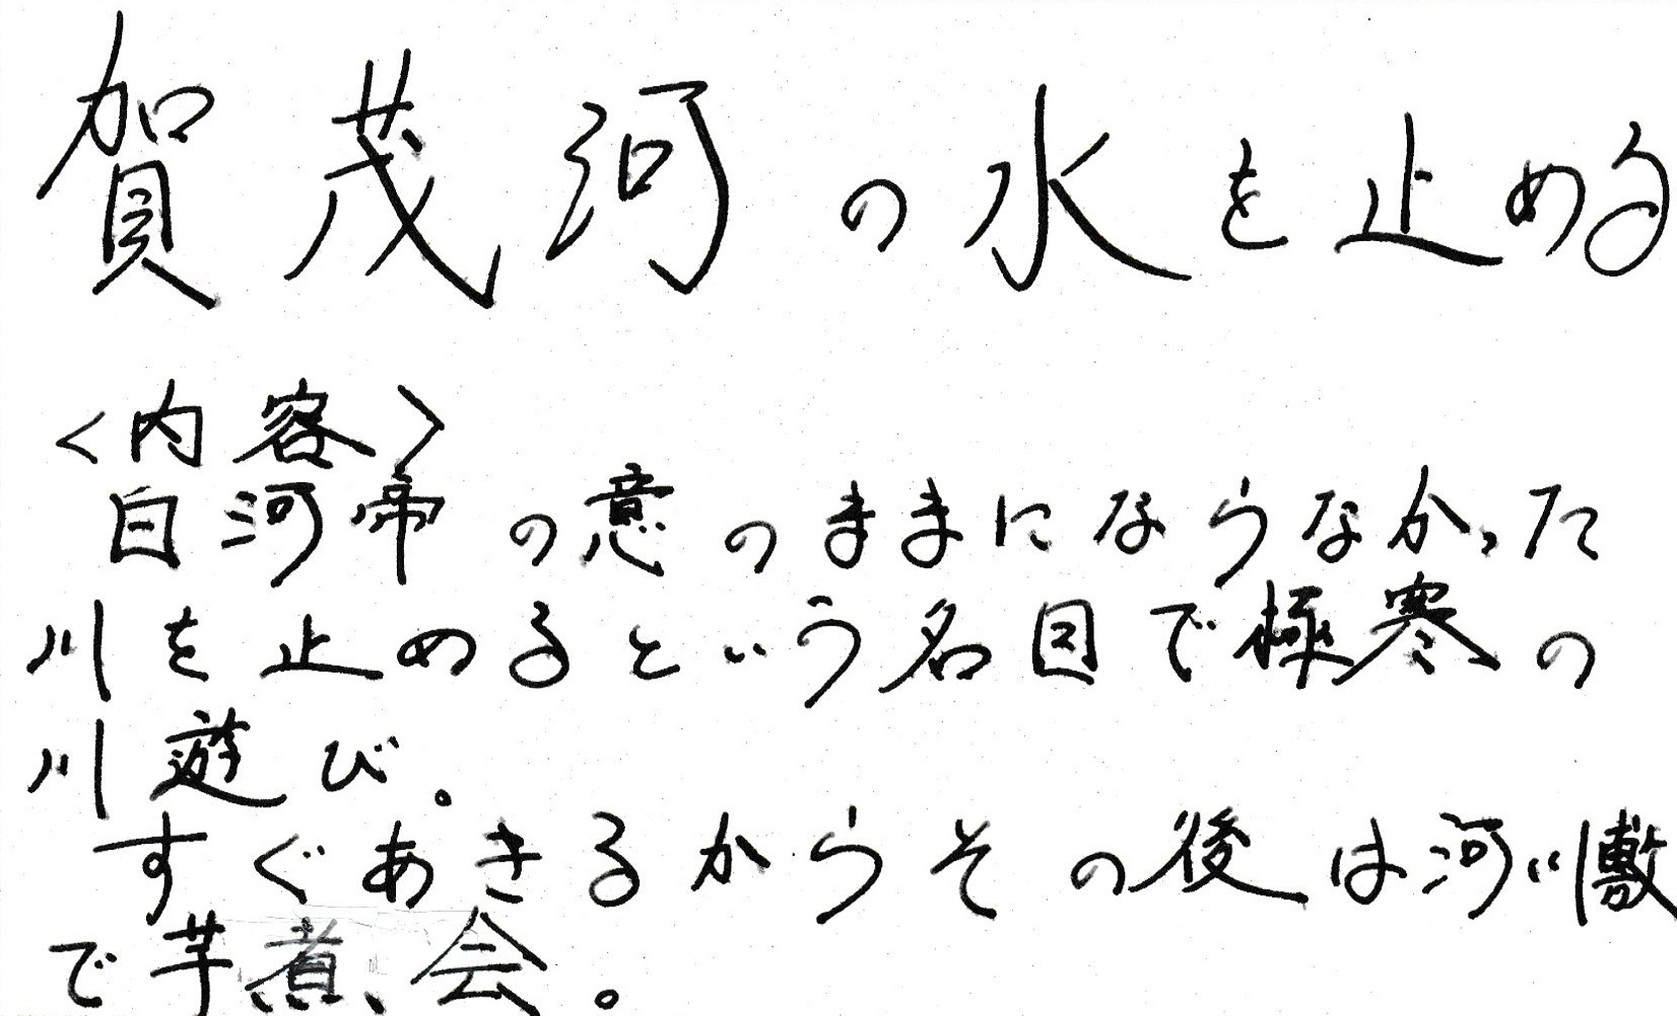 賀茂河の水を止める
<内容>
白河帝の意のままにならなかった
川を止めるという名目で極寒の
川遊び。
すぐあきるからその後は河川敷
で芋煮会。